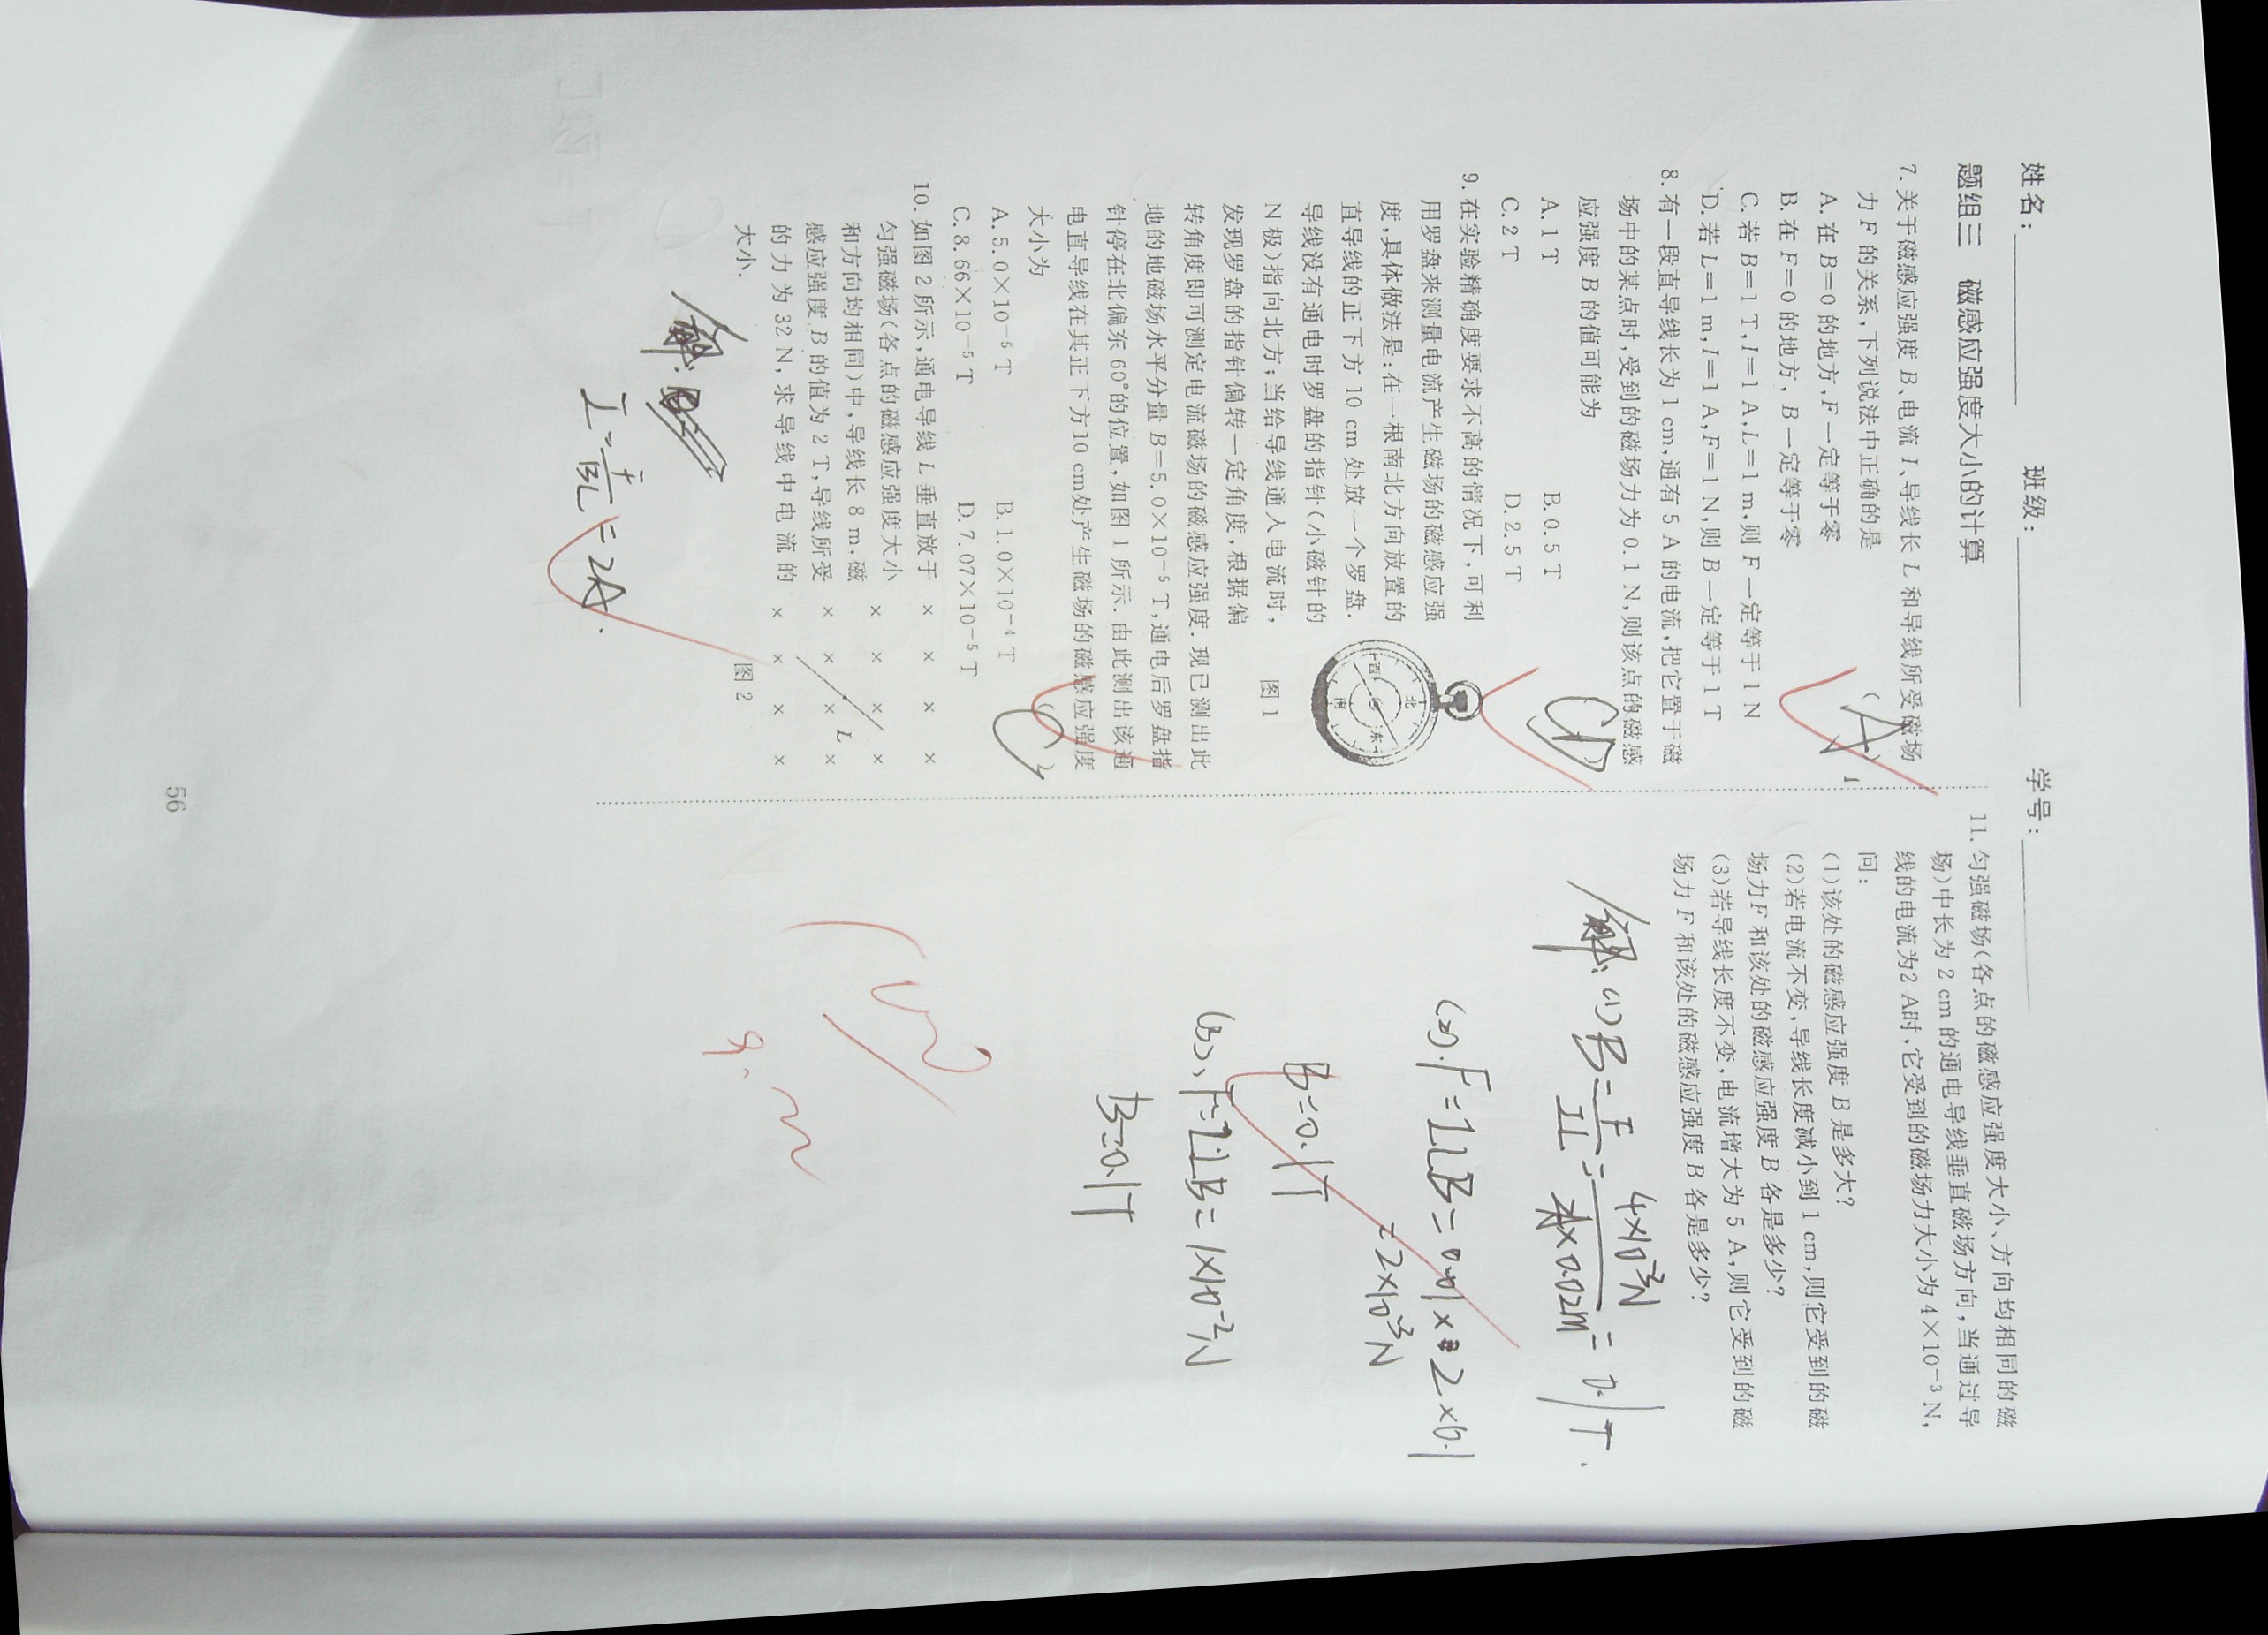 姓名： 班级： 学号：
题组三 磁感应强度大小的计算
7. 关于磁感应强度 B、电流 I、导线长 L 和导线所受磁场
力 F 的关系，下列说法中正确的是 (A)
A. 在 B=0 的地方，F 一定等于零
B. 在 F=0 的地方，B 一定等于零
C. 若 B=1 T，I=1 A，L=1 m，则 F 一定等于 1 N
D. 若 L=1 m，I=1 A，F=1 N，则 B 一定等于 1 T
8. 有一段直导线长为 1 cm，通有 5 A 的电流，把它置于磁
场中的某点时，受到的磁场力为 0.1 N，则该点的磁感
应强度 B 的值可能为 CD
A. 1 T B. 0.5 T
C. 2 T D. 2.5 T
9. 在实验精确度要求不高的情况下，可利
用罗盘来测量电流产生磁场的磁感应强
度，具体做法是：在一根南北方向放置的
直导线的正下方 10 cm 处放一个罗盘.
导线没有通电时罗盘的指针(小磁针的
N 极)指向北方；当给导线通入电流时，
发现罗盘的指针偏转一定角度，根据偏
转角度即可测定电流磁场的磁感应强度. 现已测出此
地的地磁场水平分量 B=5.0×10⁻⁵ T，通电后罗盘指
针停在北偏东 60°的位置，如图 1 所示. 由此测出该通
电直导线在其正下方10 cm处产生磁场的磁感应强度
大小为 (C)
北
东
南
西
图 1
A. 5.0×10⁻⁵ T B. 1.0×10⁻⁴ T
C. 8.66×10⁻⁵ T D. 7.07×10⁻⁵ T
10. 如图 2 所示，通电导线 L 垂直放于
匀强磁场(各点的磁感应强度大小
和方向均相同)中，导线长 8 m，磁
感应强度 B 的值为 2 T，导线所受
的力为 32 N，求导线中电流的
大小.
× × × ×
× × × ×
× × × ×
× × × ×
L
图 2
解.
I=F/BL=2A.
11. 匀强磁场(各点的磁感应强度大小、方向均相同的磁
场)中长为 2 cm 的通电导线垂直磁场方向，当通过导
线的电流为2 A时，它受到的磁场力大小为 4×10⁻³ N，
问：
(1)该处的磁感应强度 B 是多大？
(2)若电流不变，导线长度减小到 1 cm，则它受到的磁
场力F 和该处的磁感应强度 B 各是多少？
(3)若导线长度不变，电流增大为 5 A，则它受到的磁
场力 F 和该处的磁感应强度 B 各是多少？
解. (1) B=F/IL=4×10⁻³N/2A×0.02m=0.1T.
(2). F=ILB=0.01×2×0.1
=2×10⁻³N
B=0.1T
(3), F=ILB=1×10⁻²N
B=0.1T
56